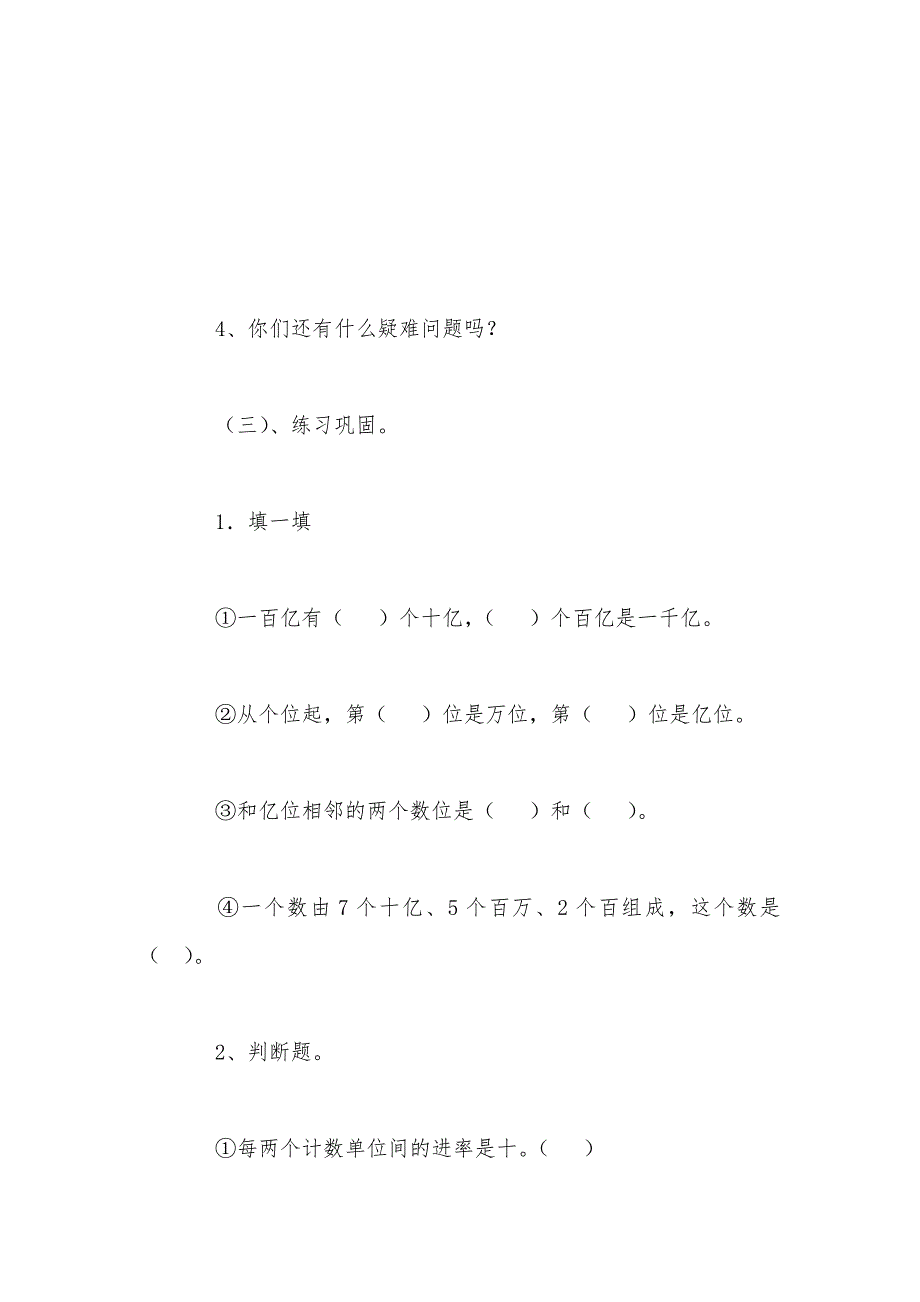 4、你们还有什么疑难问题吗？
（三）、练习巩固。
1．填一填
①一百亿有（   ）个十亿，（   ）个百亿是一千亿。
②从个位起，第（   ）位是万位，第（   ）位是亿位。
③和亿位相邻的两个数位是（   ）和（   ）。
④一个数由 7 个十亿、5 个百万、2 个百组成，这个数是
（  ）。
2、判断题。
①每两个计数单位间的进率是十。（   ）